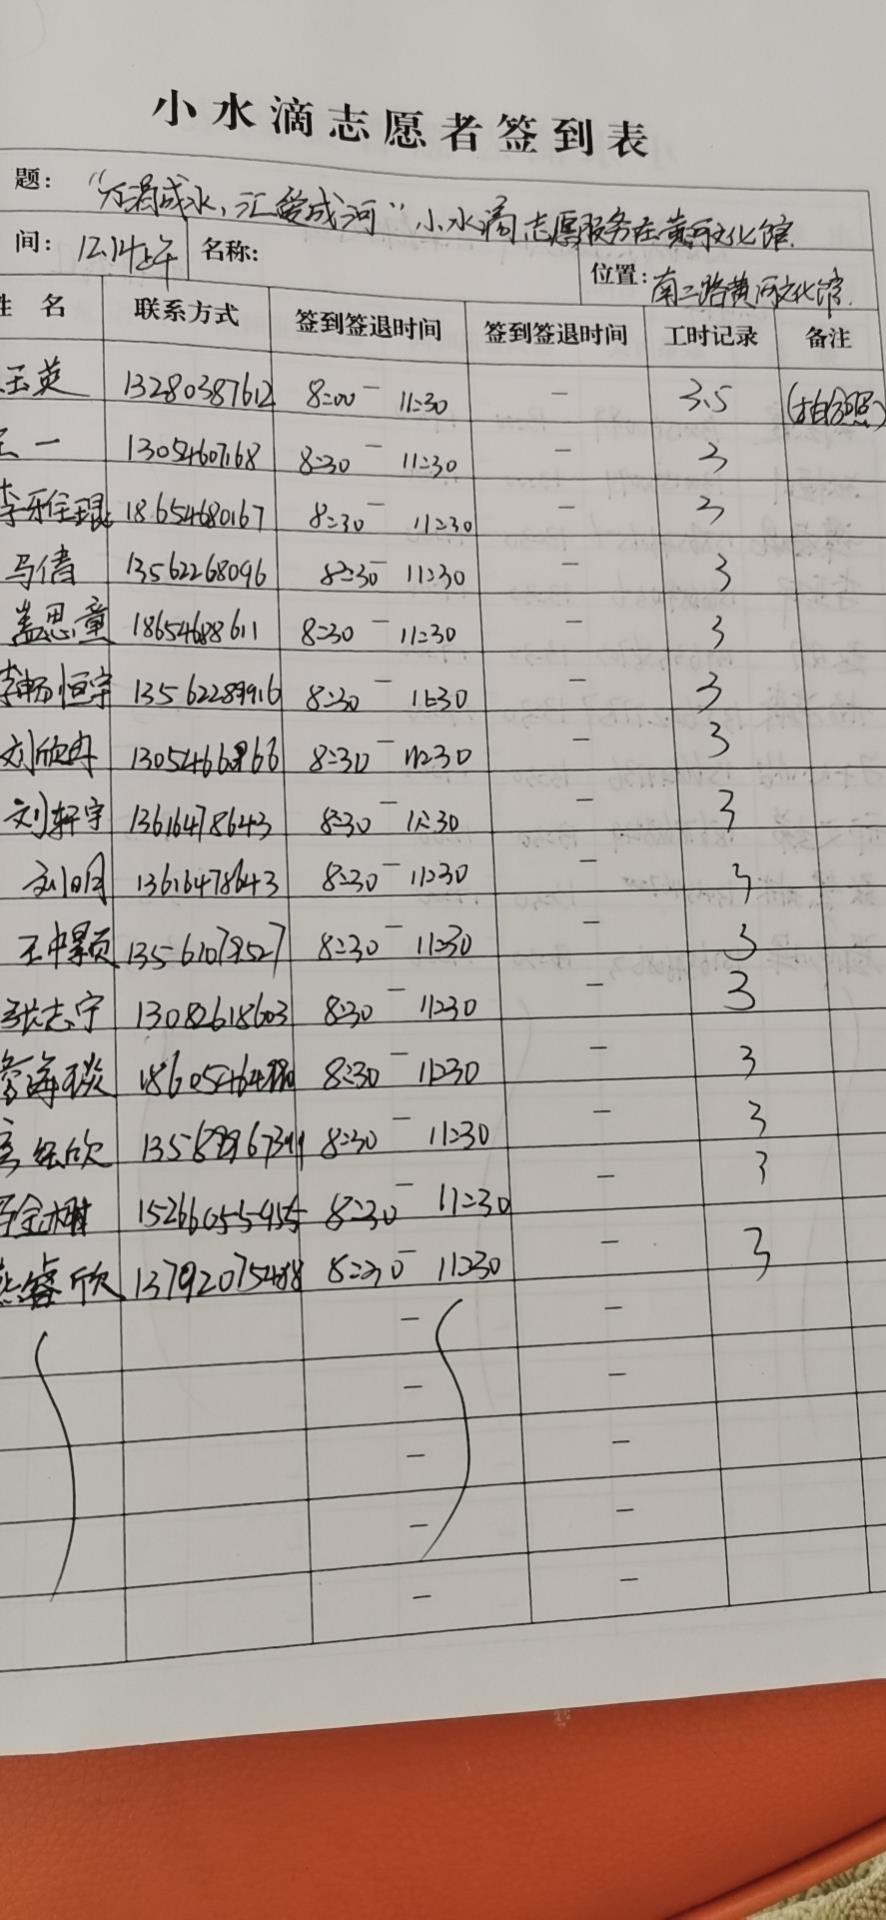 小水滴志愿者签到表
题: "万滴成水,汇爱成河"小水滴志愿服务在黄河文化馆
间: 12.14上午 名称: 位置: 南二路黄河文化馆.
姓 名 联系方式 签到签退时间 签到签退时间 工时记录 备注
玉英 13280387612 8:00 - 11:30 - 3.5 (拍照)
王一 13054607168 8:30 - 11:30 - 3
李雅琨 18654680167 8:30 - 11:30 - 3
马倩 13562268096 8:30 - 11:30 - 3
盖思童 18654688611 8:30 - 11:30 - 3
李畅恒宇 13562289916 8:30 - 11:30 - 3
刘欣冉 8:30 - 11:30 - 3
刘轩宇 13616478643 8:30 - 11:30 - 3
刘明月 13616478643 8:30 - 11:30 - 3
王中景 13561079527 8:30 - 11:30 - 3
张志宁 13082618603 8:30 - 11:30 - 3
8:30 - 11:30 - 3
欣 8:30 - 11:30 - 3
8:30 - 11:30 - 3
燕睿欣 13792075488 8:30 - 11:30 - 3
- -
- -
- -
- -
- -